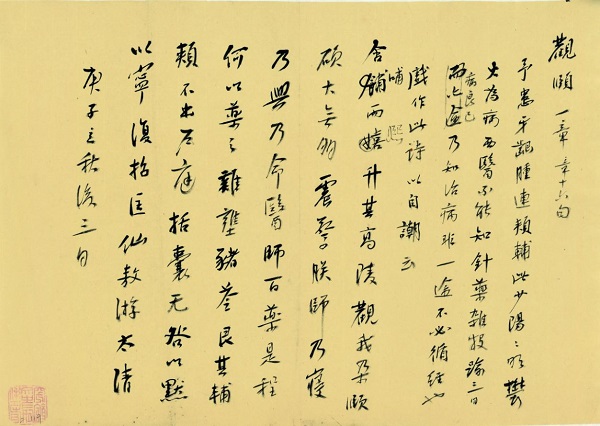 觀頤一章 章十六句
予患牙齦腫連頰輔此少陽陽明鬱
火為病西醫不能知針藥雜投踰三日
病良已
乃知治病非一途不必循經也
戲作此詩以自謿云
哺 熙
含餔而嬉升其高陵觀我朵頤
碩大無朋震驚朕師乃寢
乃興乃命醫師百藥是程
何以藥之雞壅豬苓艮其輔
頰不出户庭括囊无咎以默
以寧復招匡仙敖游太清
庚子立秋後三日